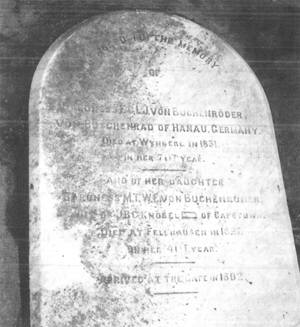 TO THE MEMORY
OF
VON BUCHENRODER,
VON BUCHENRAD OF HANAU, GERMANY.
DIED AT WYNBERG IN 1831.
IN HER 71ST YEAR.
AND OF HER DAUGHTER
BARONESS M.T.W.E. VON BUCHENRODER.
OF CAPETOWN
DIED AT FELDHAUSEN IN
IN HER 41ST YEAR.
ARRIVED AT THE CAPE IN 1802.